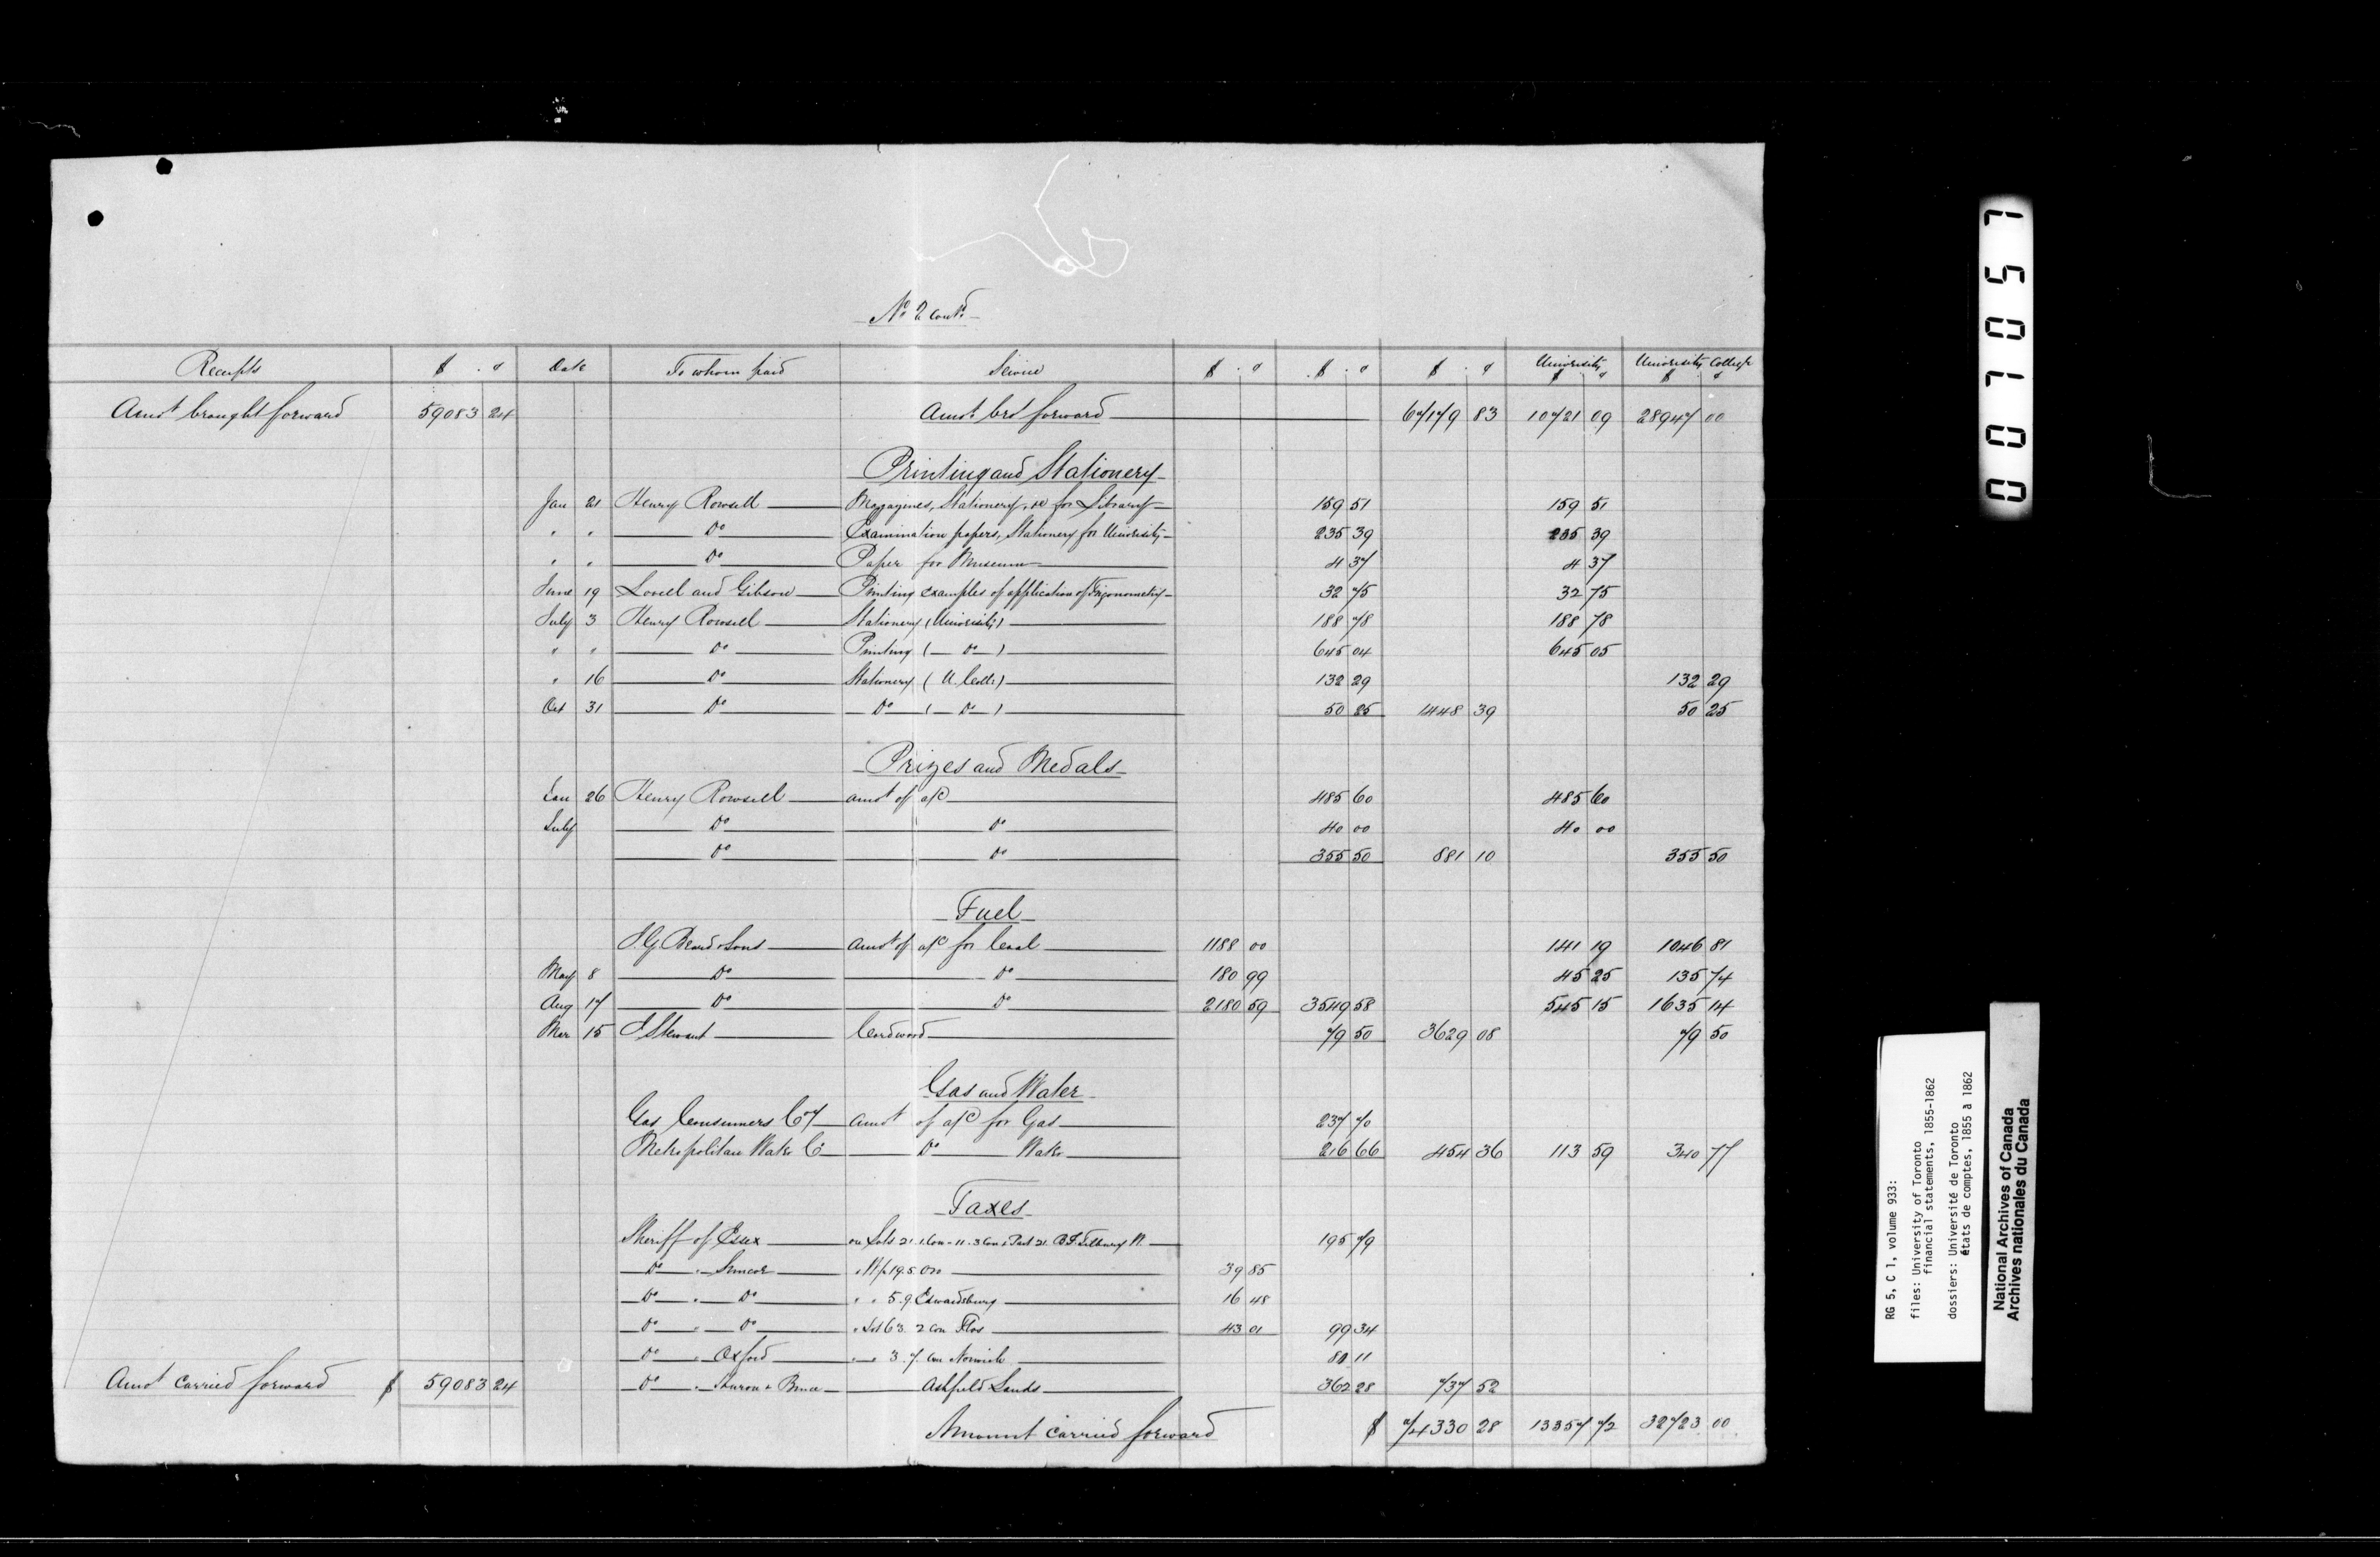 No 2 contd
Receipts $ . c Date To whom paid Service $ . c $ . c $ . c University $ c University College $ c
Amot brought forward 59083 24 Amot brd forward 67179 83 10721 09 28947 00
Printing and Stationery
Jan 21 Henry Rowsell Magazines, Stationery, &c for Library 159 51 159 51
" " Do Examination papers, Stationery for University 235 39 235 39
" " Do Paper for Museum 4 37 4 37
June 19 Lovell and Gibson Printing examples of application of Trigonometry 32 75 32 75
July 3 Henry Rowsell Stationery (University) 188 78 188 78
" " Do Printing ( Do ) 645 04 645 05
" 16 Do Stationery (U. Coll:) 132 29 132 29
Oct 31 Do Do ( Do ) 50 25 1448 39 50 25
Prizes and Medals
Jan 26 Henry Rowsell amot of a/c 485 60 485 60
July Do Do 40 00 40 00
Do Do 355 50 881 10 355 50
Fuel
J.G. Beard & Sons amot of a/c for Coal 1188 00 141 19 1046 81
May 8 Do Do 180 99 45 25 135 74
Aug 17 Do Do 2180 59 3549 58 545 15 1635 14
Mar 15 J Stewart Cordwood 79 50 3629 08 79 50
Gas and Water
Gas Consumers Coy amot of a/c for Gas 237 70
Metropolitan Water Co Do Water 216 66 454 36 113 59 340 77
Taxes
Sheriff of Essex on Lots 21. 1 Con - 11. 3 Con & Part 21. B.F. Tilbury W. 195 79
Do " Simcoe " W/p 19.5 Oro 39 85
Do " Do " " 5.9. Edwardsburg 16 48
Do " Do " Lot 63. 2 Con Flos 43 01 99 34
Do " Oxford " " 3. 7. Con Norwich 80 11
Amot Carried forward $ 59083 24 Do " Huron & Bruce Ashfield Lands 362 28 737 52
Amount Carried forward $ 74330 28 13357 72 32723 00
007057
RG 5, C 1, volume 933:
files: University of Toronto
financial statements, 1855-1862
dossiers: Université de Toronto
états de comptes, 1855 à 1862
National Archives of Canada
Archives nationales du Canada